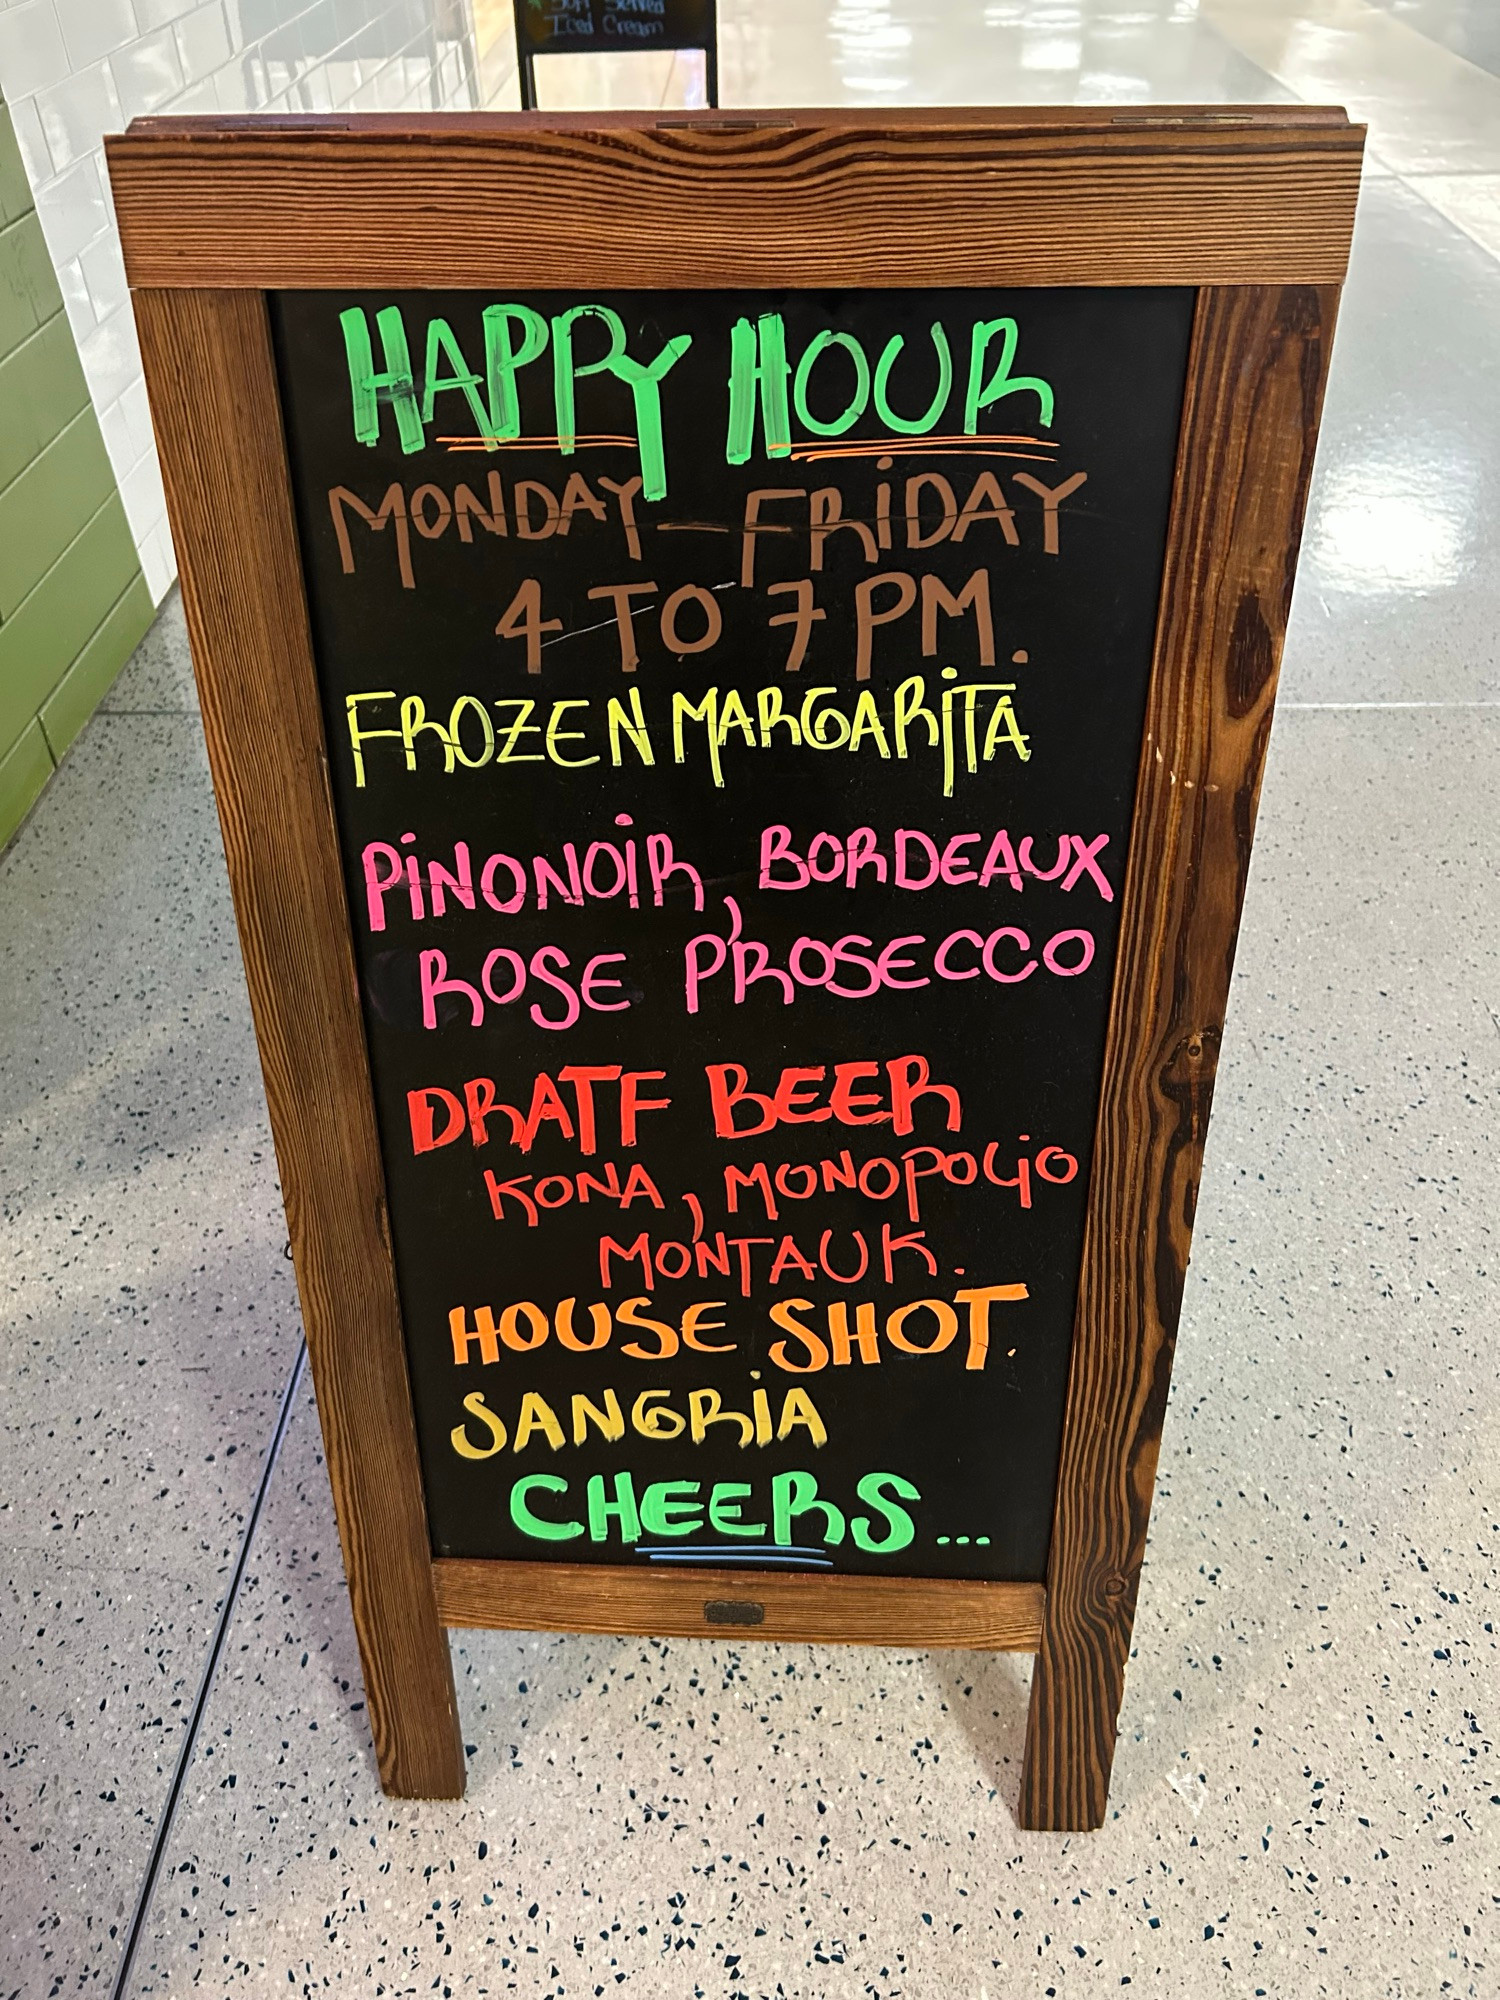 Soft Served
Iced Cream
HAPPY HOUR
MONDAY - FRIDAY
4 TO 7 PM.
FROZEN MARGARITA
PINONOIR, BORDEAUX
ROSE PROSECCO
DRATF BEER
KONA, MONOPOLIO
MONTAUK.
HOUSE SHOT.
SANGRIA
CHEERS...